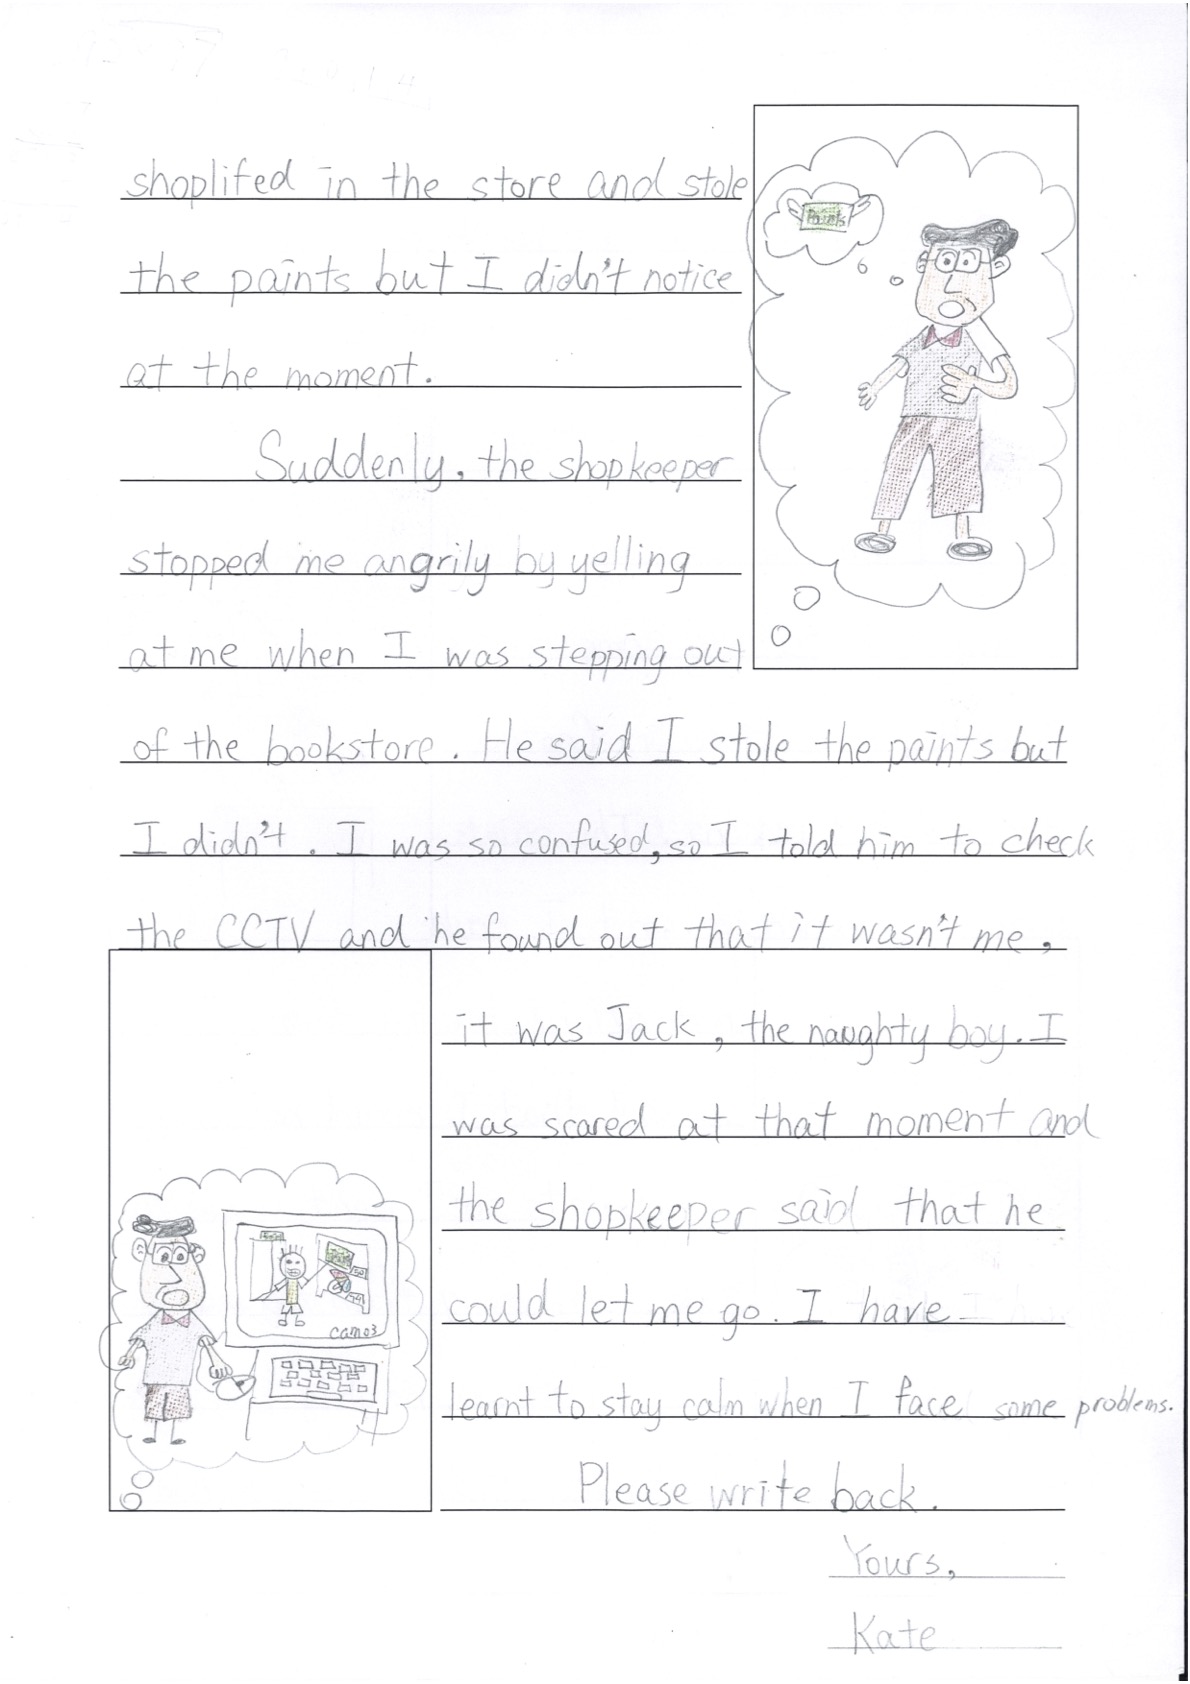 shoplifed in the store and stole
Paints
the paints but I didn't notice
at the moment.
Suddenly, the shopkeeper
stopped me angrily by yelling
at me when I was stepping out
of the bookstore. He said I stole the paints but
I didn't. I was so confused, so I told him to check
the CCTV and he found out that it wasn't me,
it was Jack, the naughty boy. I
was scared at that moment and
the shopkeeper said that he
could let me go. I have
cam03
learnt to stay calm when I face some problems.
Please write back.
Yours,
Kate